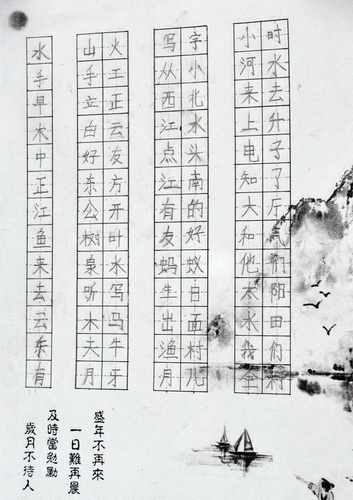 水
手
早
木
中
正
江
鱼
来
去
云
乐
有
山火
手工
立正
白云
好友
东方
公开
树叶
泉水
听写
木马
天牛
月牙
写字
从小
西北
江水
点头
江南
有的
友好
蚂蚁
生白
出面
渔村
月儿
小时
河水
来去
上升
电子
知了
大厅
和气
他们
太阳
水田
我们
全村
盛年不再來
一日難再晨
及時當勉勵
歲月不待人